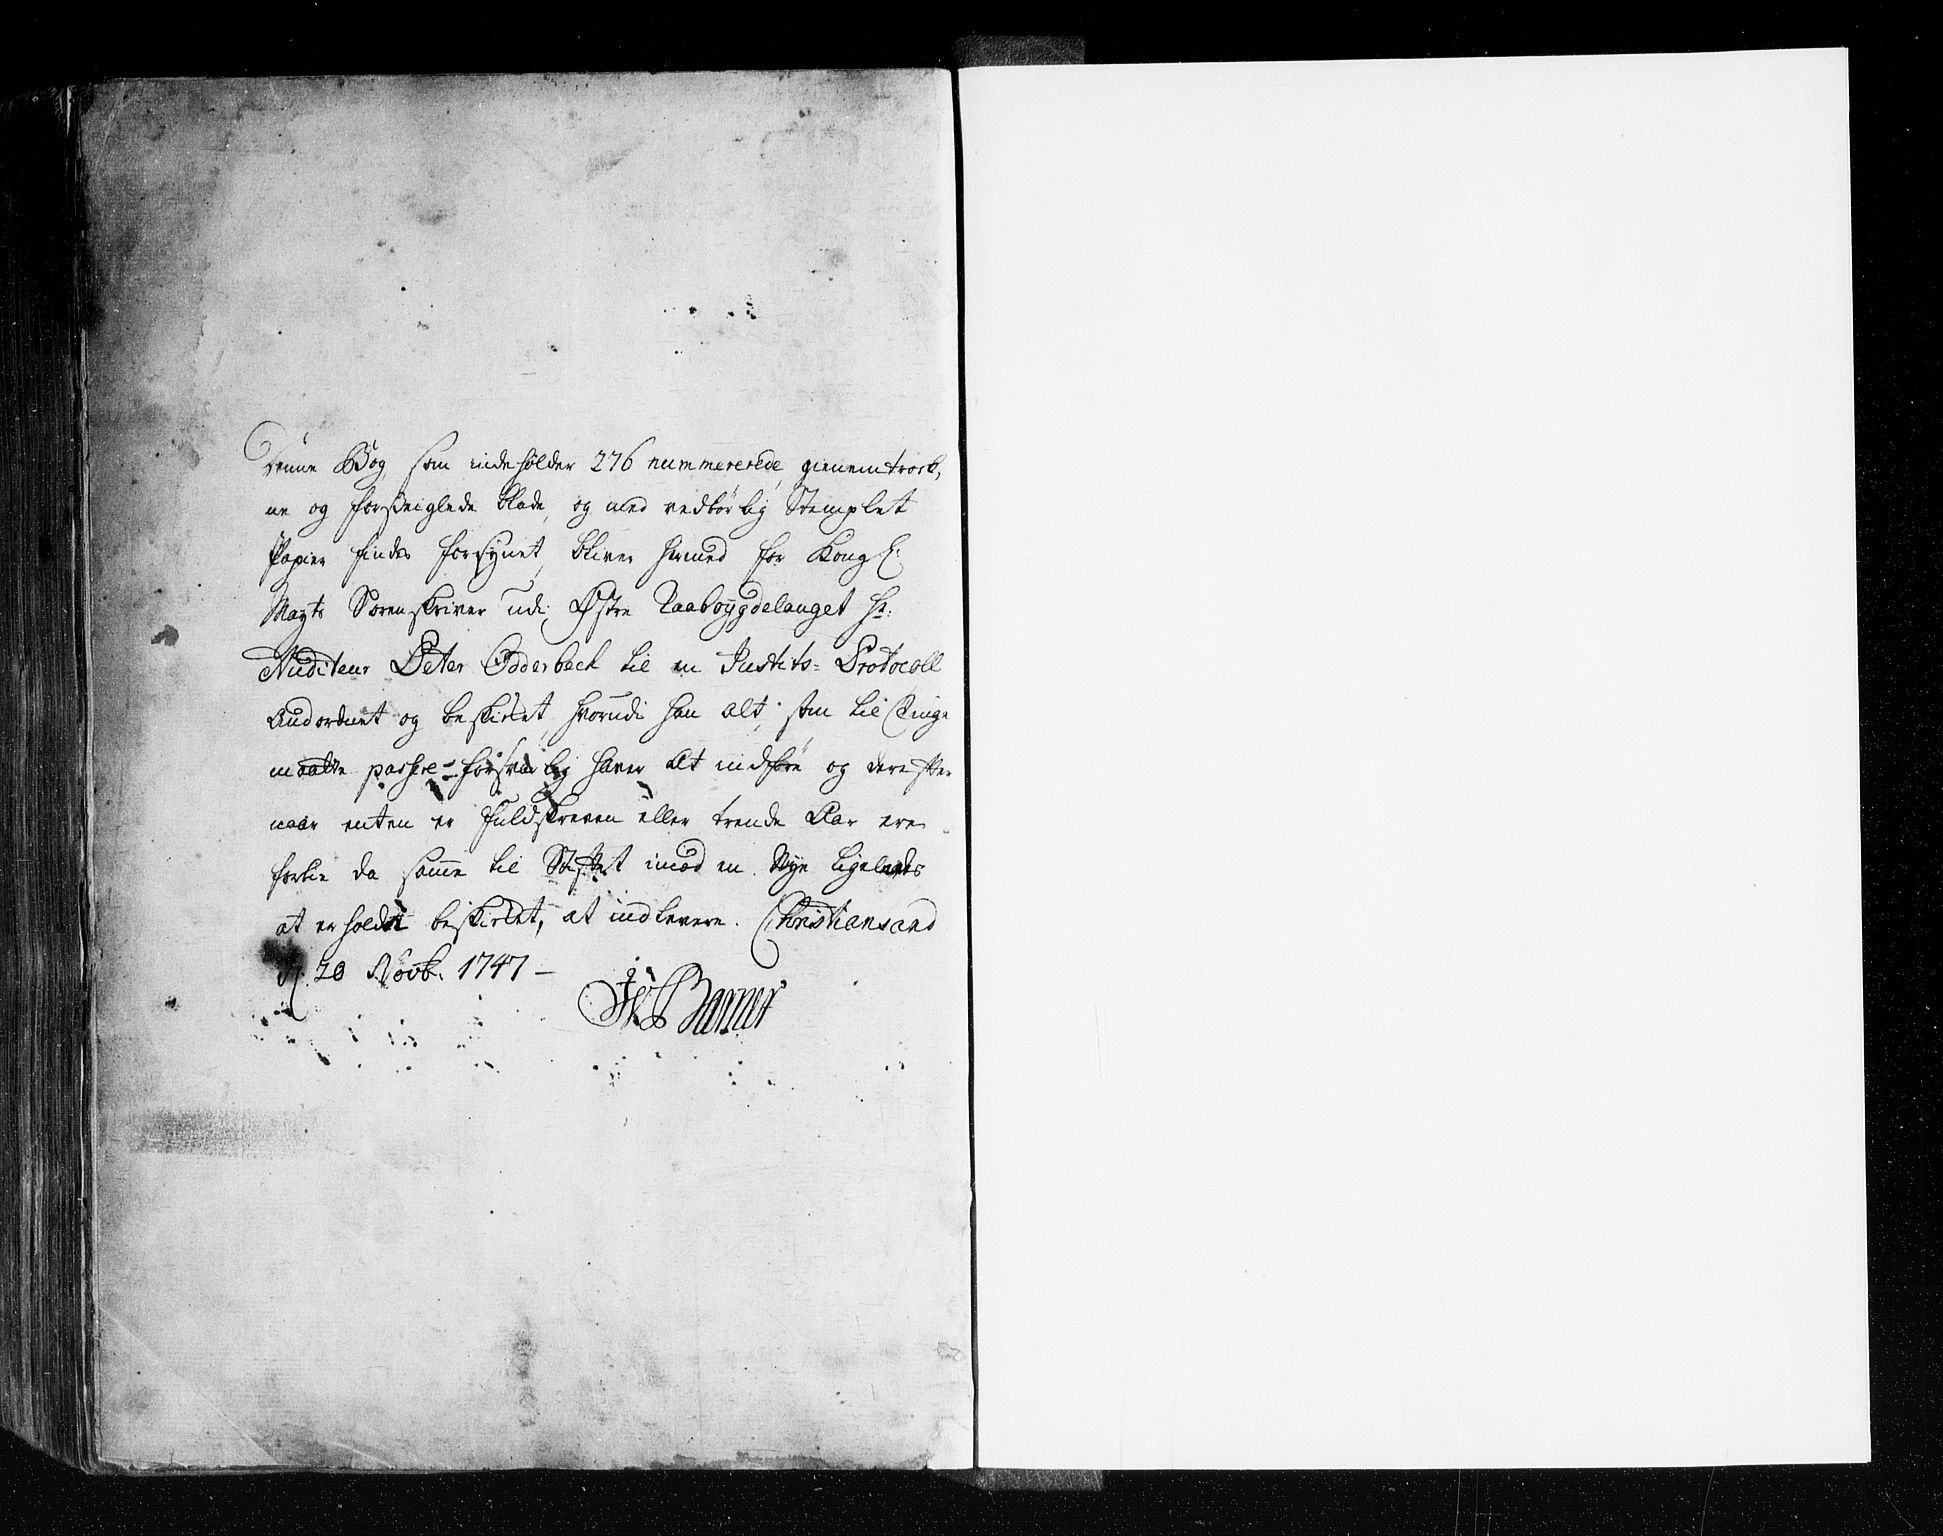 Denne Bog, som indeholder 276 nummererede, gienemtrock,
ne og forseiglede blade, og med vedbørlig Stemplet
Papier findes forsynet, bliver hermed for Kongl:
Mayts Sorenskriver udi Østre Raabøygdelauget Hr:
Auditeur Peter Odderbech til en Justits= Protocoll
Andordnet og beskicket, hvorudi han alt, som til Tinge
maatte passere forsvarlig haver at indføre og derefter
naar enten er fuldskreven eller trende Aar ere
forbie da samme til Stiftet imod en Nye ligeledes
at erholde beskicket, at indlevere. Christiansand
d. 20 Novb. 1747 –
Barner